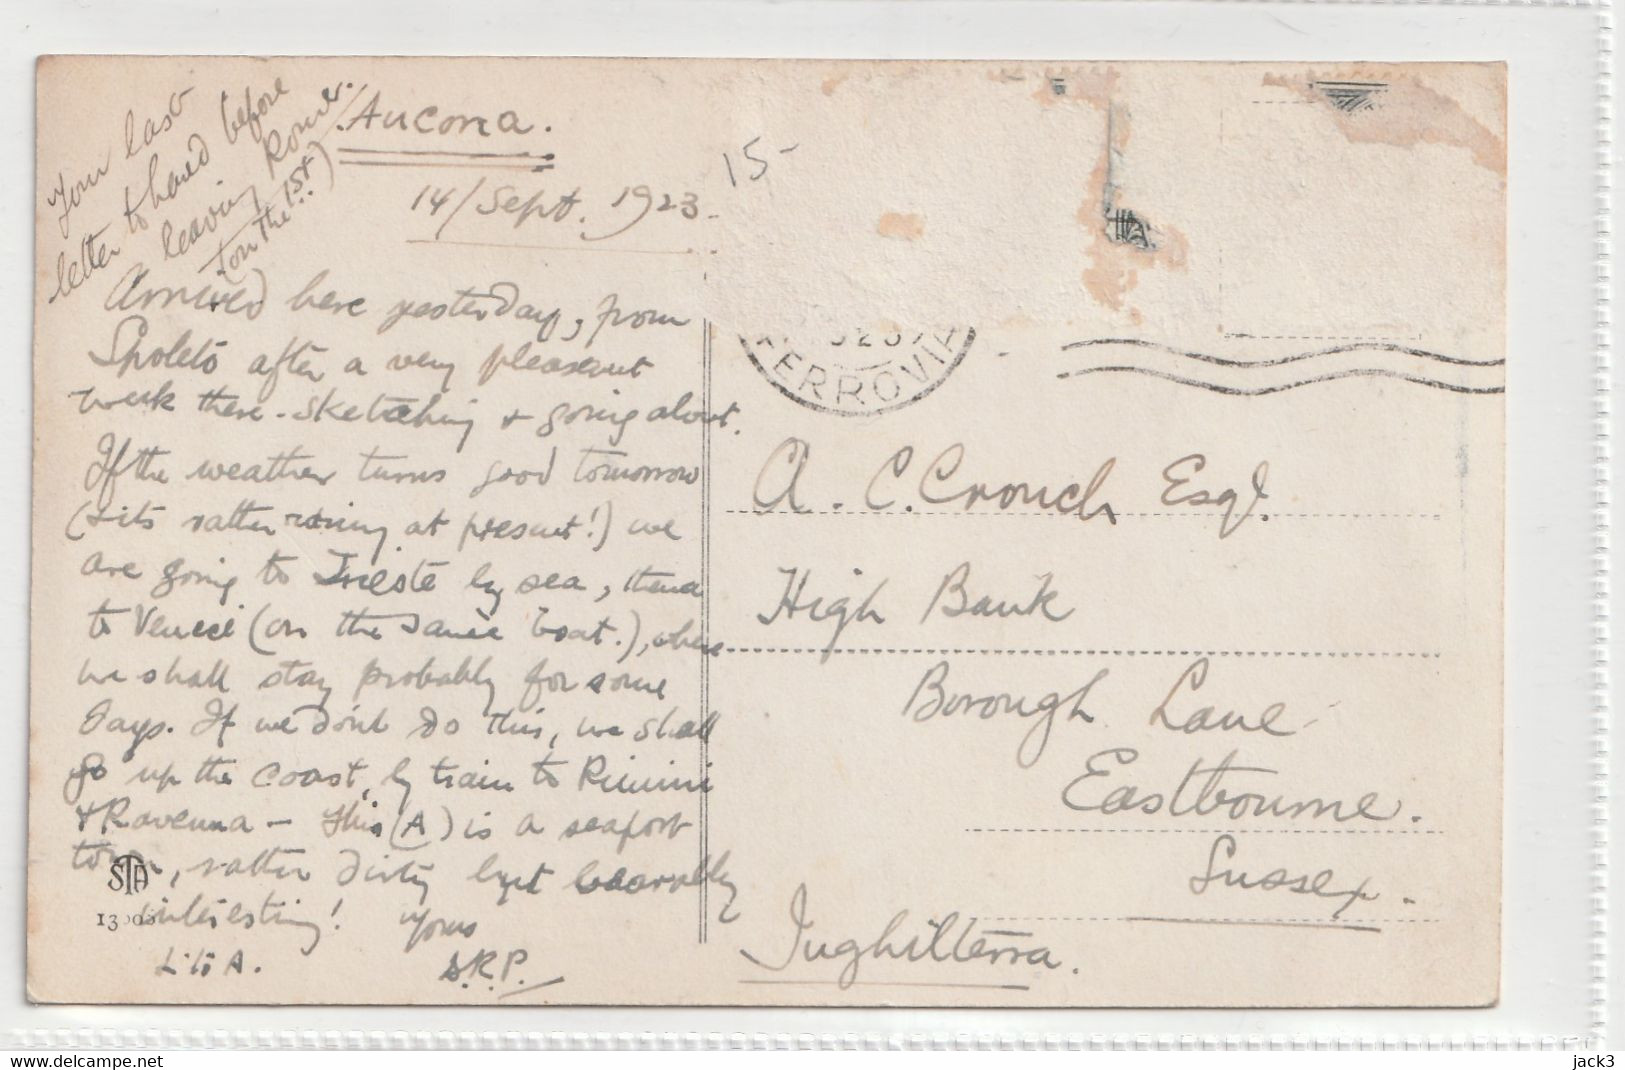 Your last
letter to hand before
leaving Rome.
(on the 1st)
Ancona.
14/Sept. 1923.
15-
Arrived here yesterday, from
Spoleto after a very pleasant
week there - sketching & going about.
If the weather turns good tomorrow
(& its rather rainy at present!) we
are going to Trieste by sea, thence
to Venice (on the same boat.), where
we shall stay probably for some
days. If we don't do this, we shall
go up the coast, by train to Rimini
& Ravenna - This (A) is a seaport
town, rather dirty but
interesting! Yours
L. to A. S.R.P.
STA
FERROVIA
A. C. Crouch Esq.
High Bank
Borough Lane
Eastbourne.
Sussex.
Inghilterra.
https://www.delcampe.net
jack3